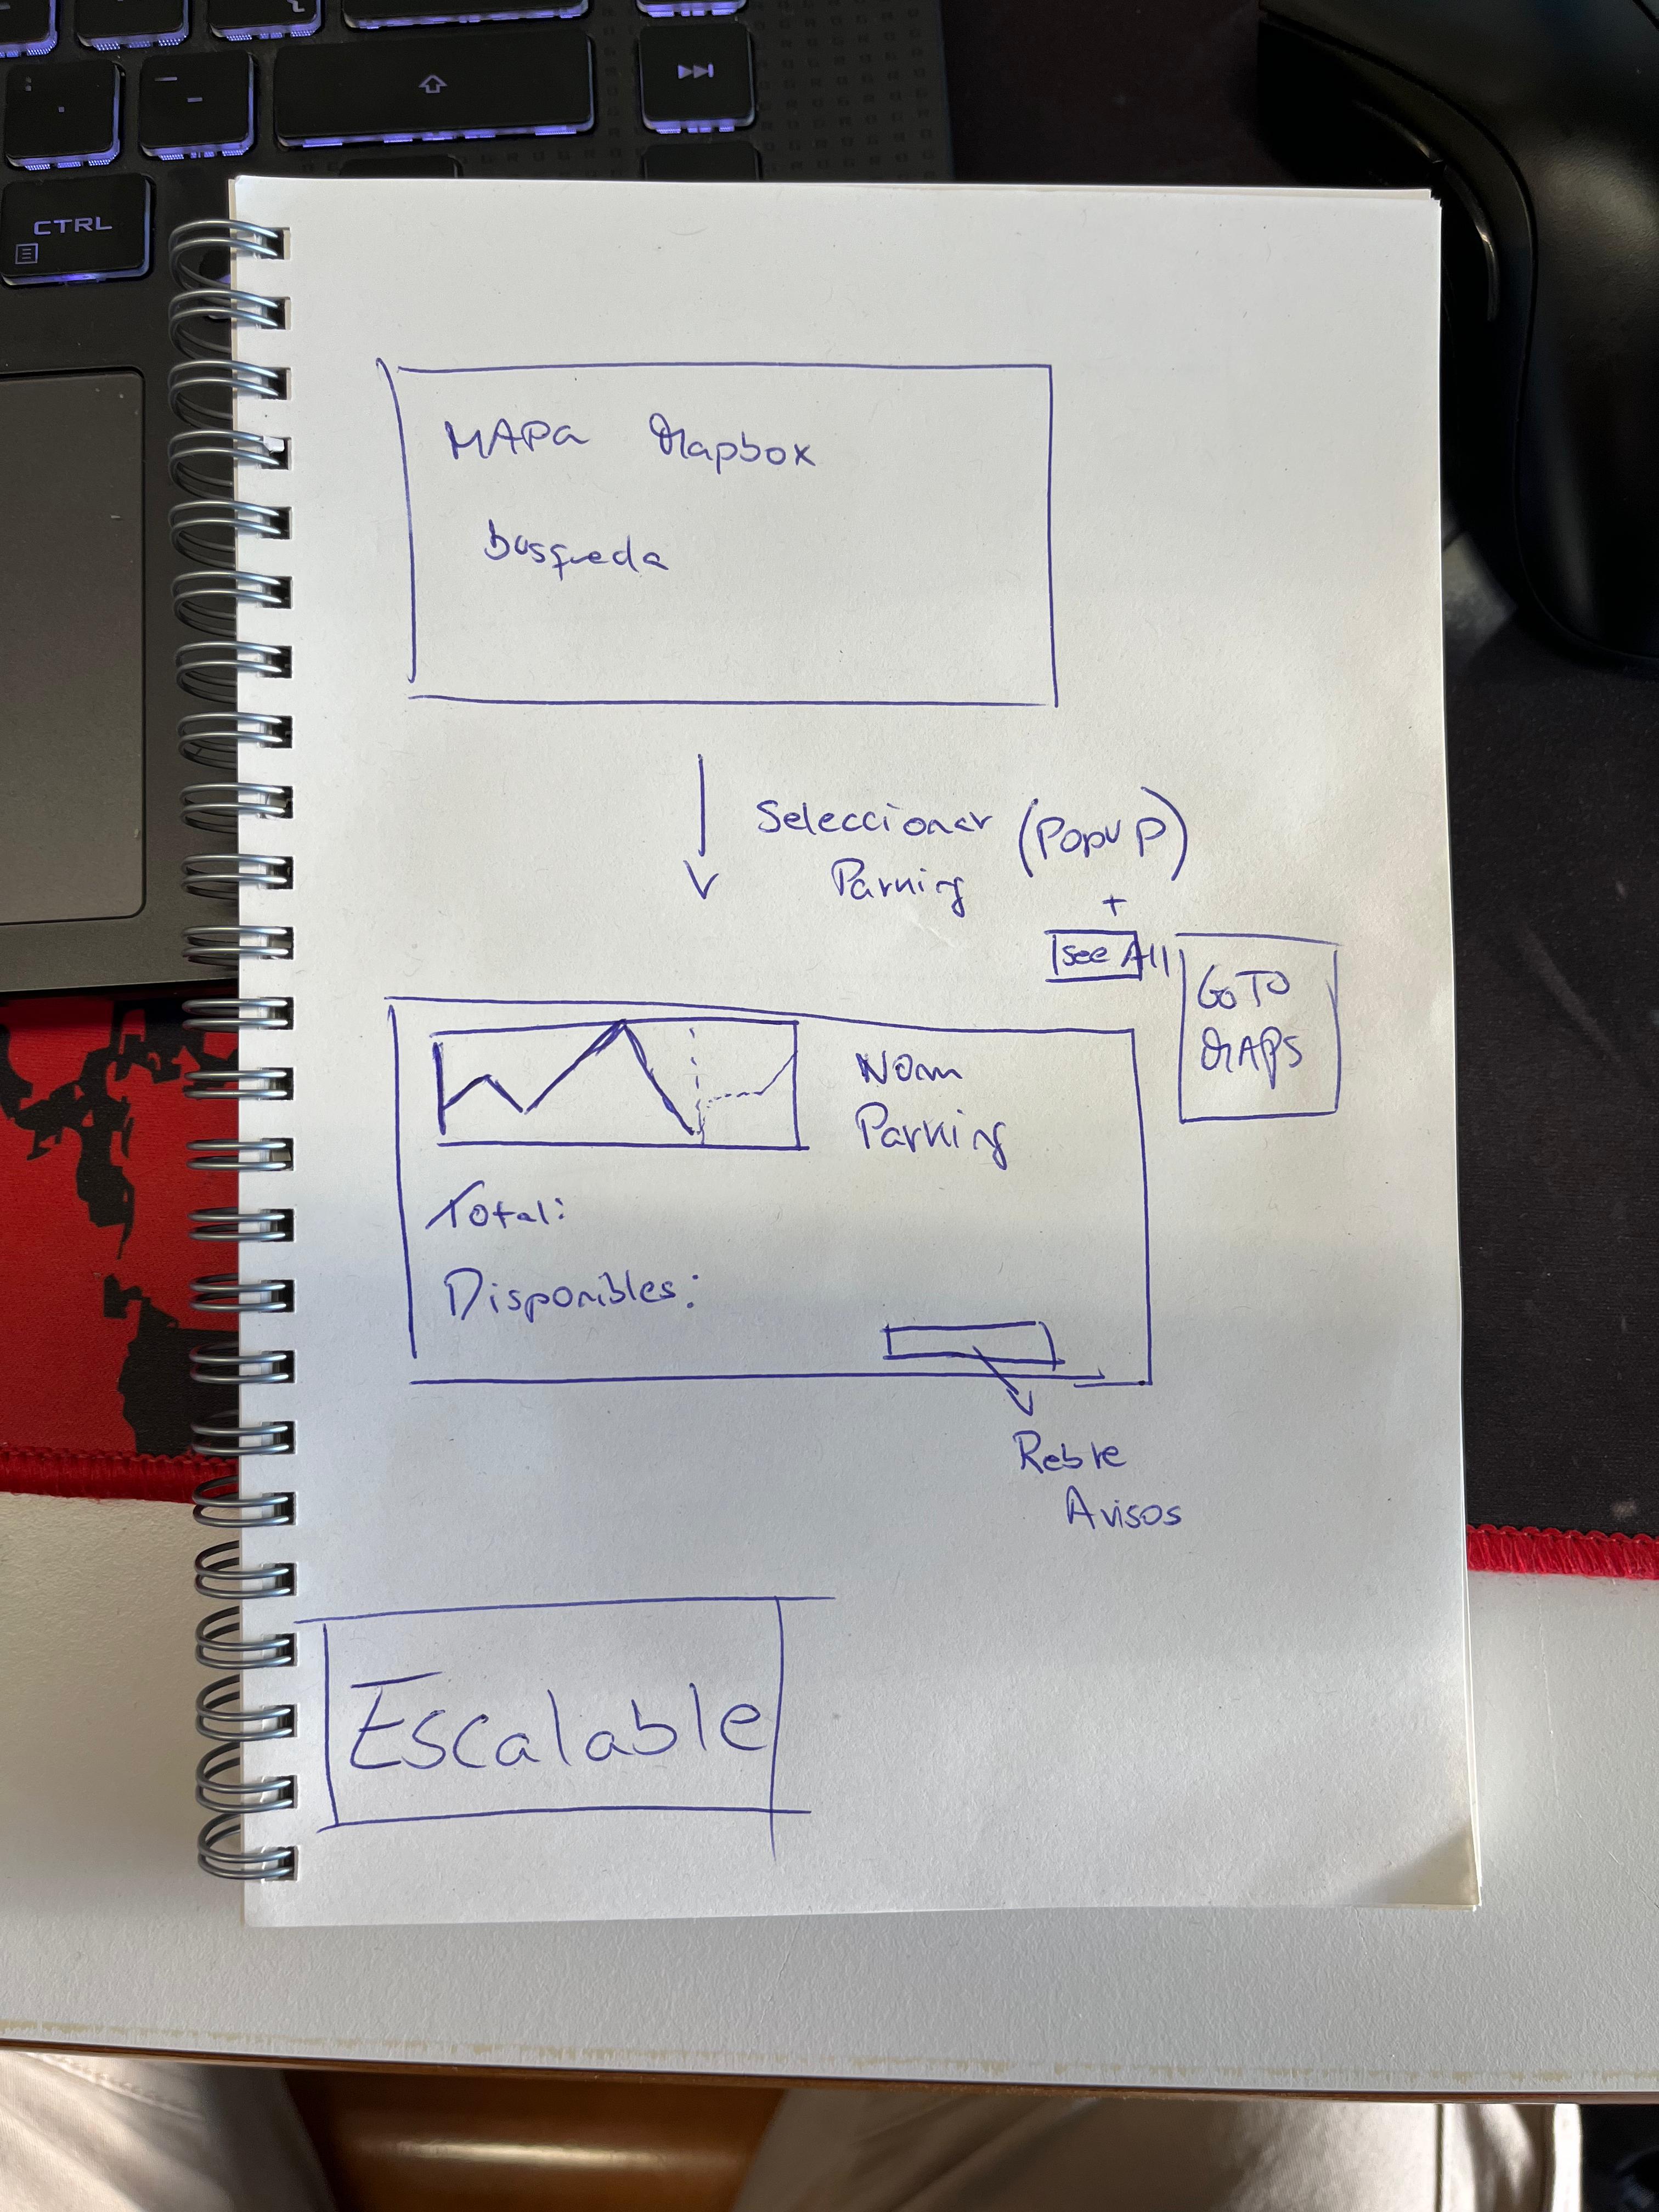 CTRL
MAPa Mapbox
busqueda
Seleccionar (PopUP)
Parking
+
See All
GO TO
MAPS
Nom
Parking
Total:
Disponibles:
Rebre
Avisos
Escalable